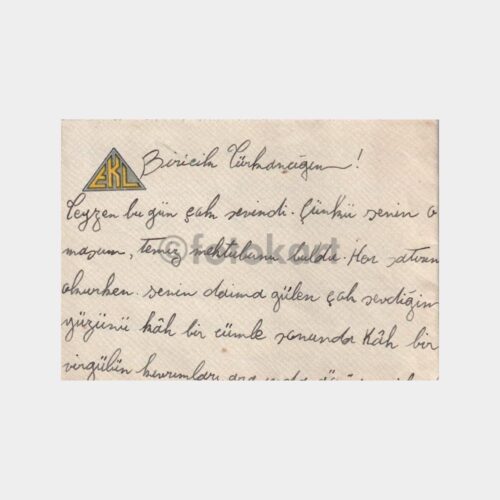 EKL
Biricik Türkancığım!
Teyzen bu gün çok sevindi. Çünkü senin o
masum, temiz mektubunu buldu. Her satırını
okurken senin daima gülen çok sevdiğim
yüzünü kâh bir cümle sonunda kâh bir
virgülün kıvrımları
©fotokart